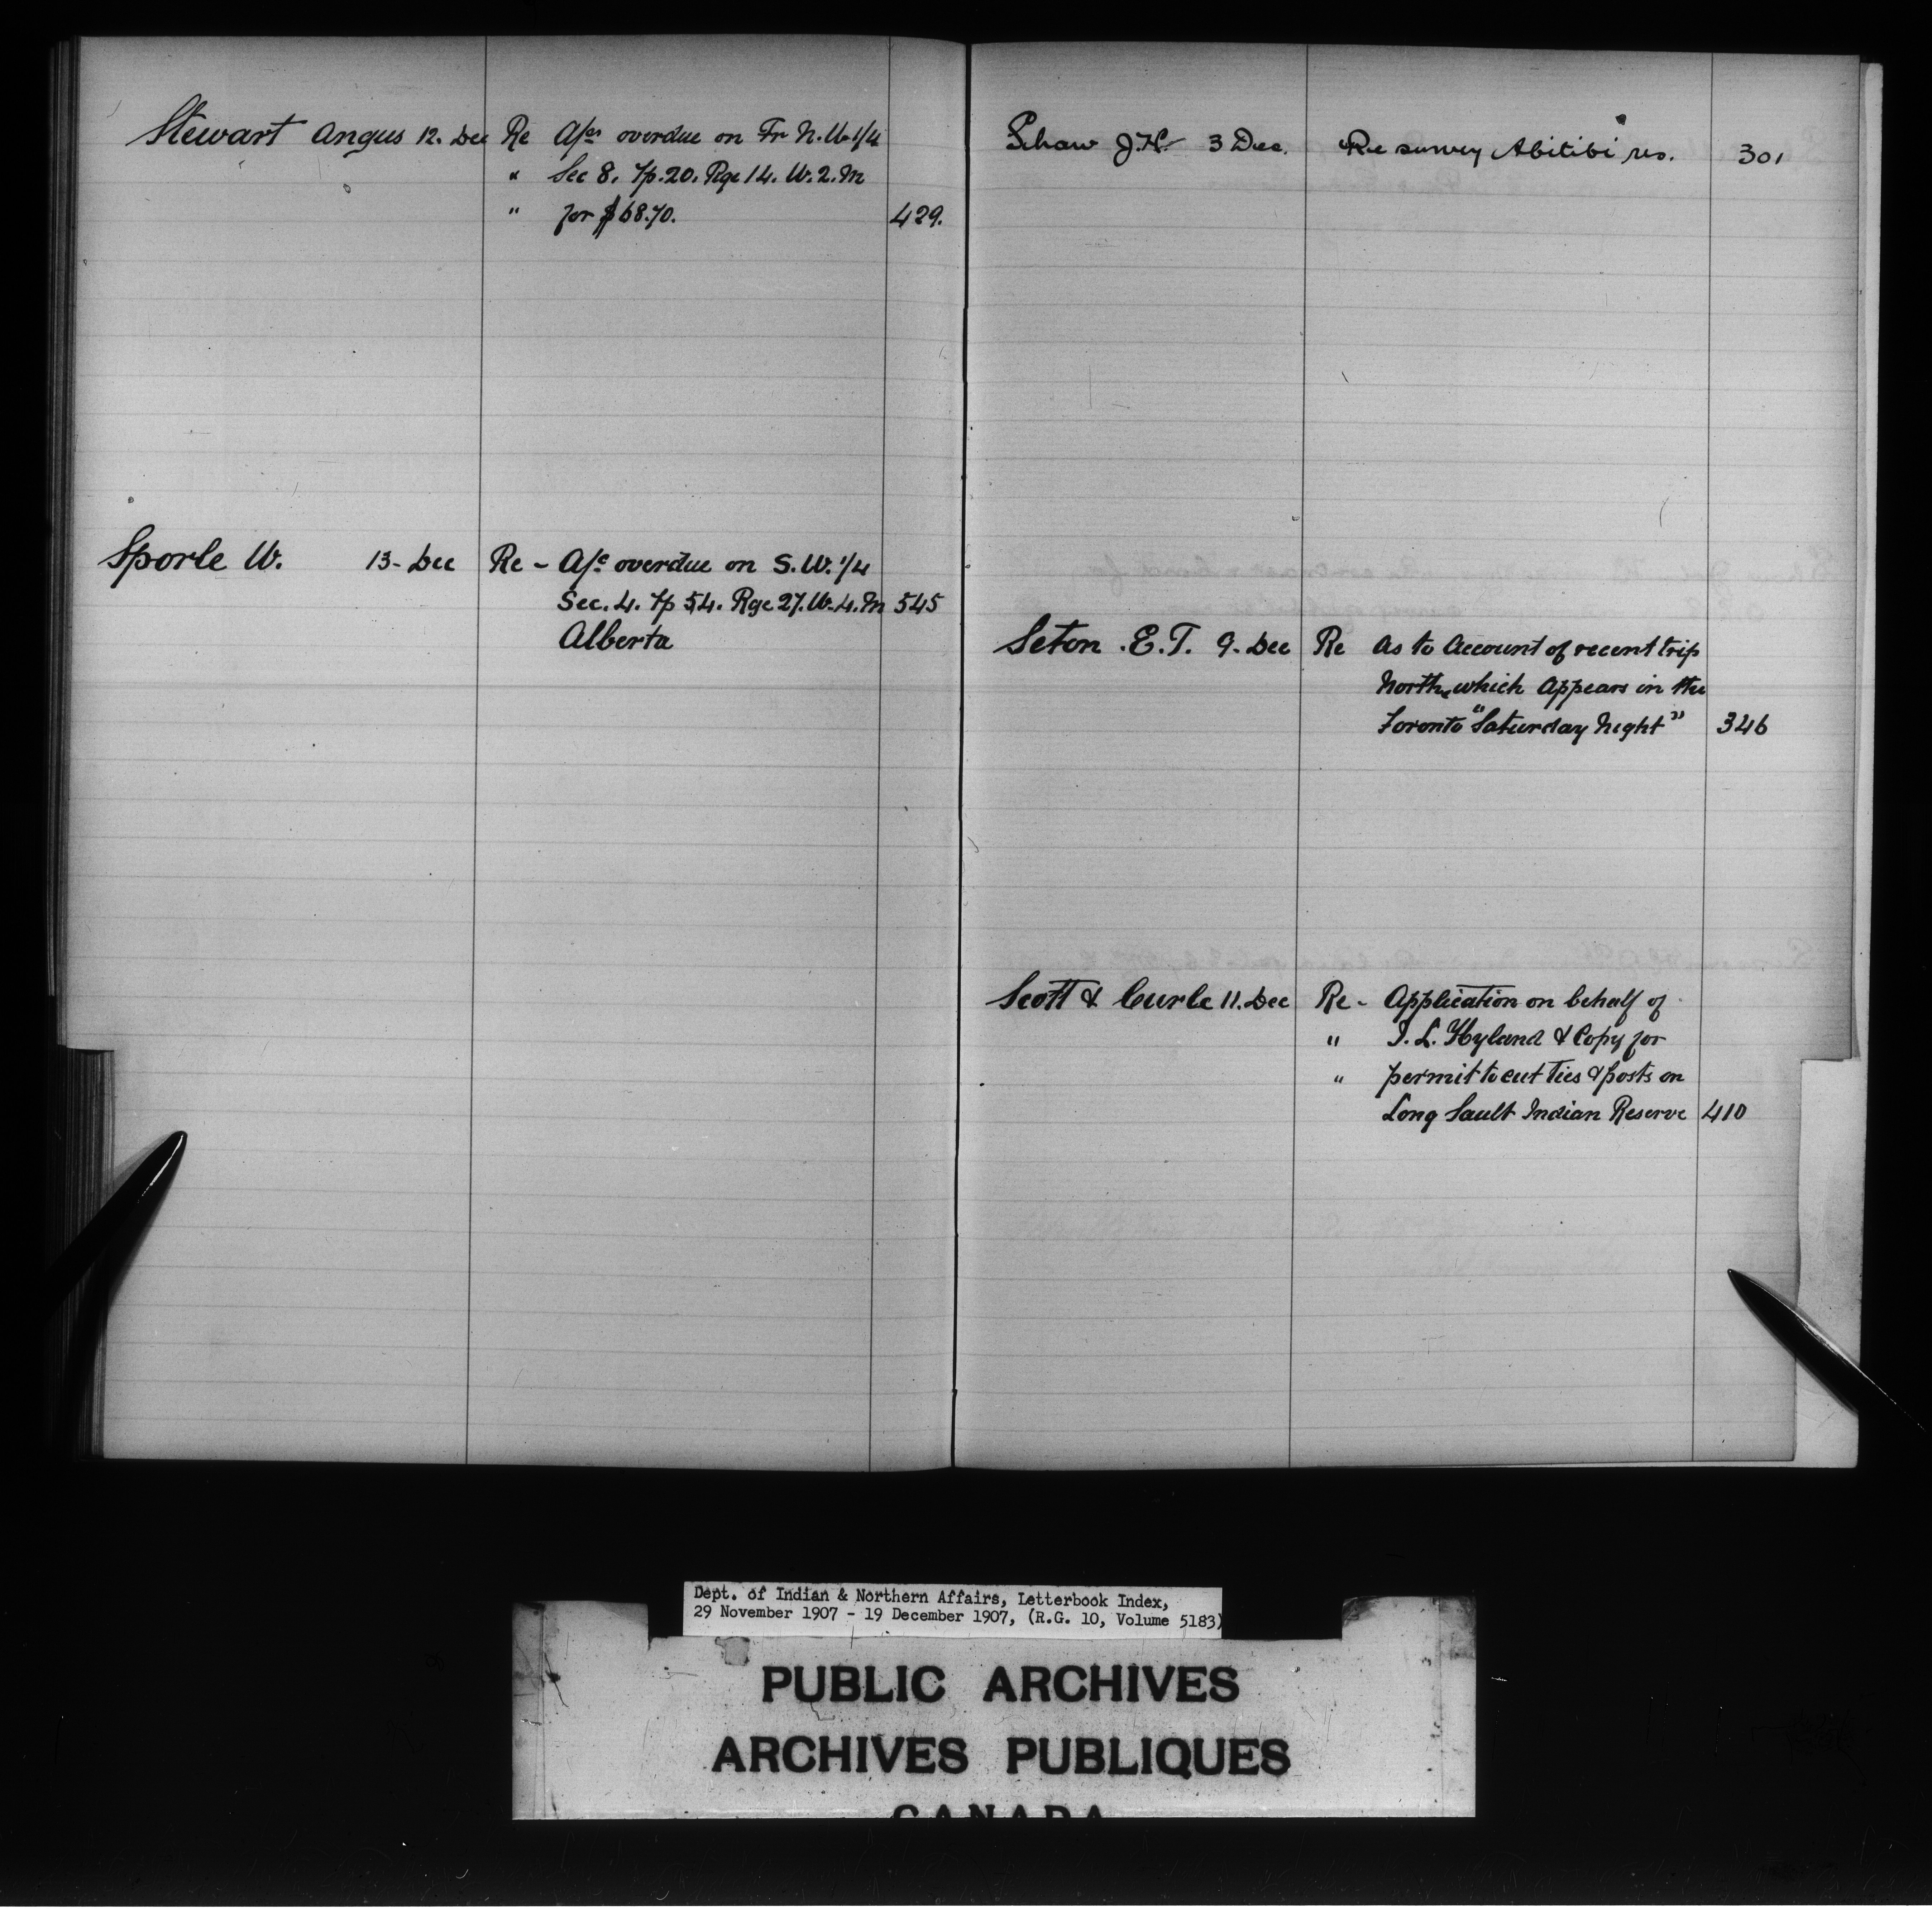 Stewart Angus 12. Dec Re A/cs overdue on Fr N.W. 1/4
" Sec 8. Tp. 20. Rge 14. W. 2. M
" for $68.70. 429.
Sporle W. 13- Dec Re - A/c overdue on S.W. 1/4
Sec. 4. Tp 54. Rge 27. W. 4. M 545
Alberta
Shaw J.H. 3 Dec. Re survey Abitibi res. 301
Seton .E.T. 9. Dec Re As to Account of recent trip
North, which Appears in the
Toronto "Saturday Night" 346
Scott & Curle 11. Dec Re - Application on behalf of
" J. L. Hyland & Copy for
" permit to cut Ties & posts on
Long Sault Indian Reserve 410
Dept. of Indian & Northern Affairs, Letterbook Index,
29 November 1907 - 19 December 1907, (R.G. 10, Volume 5183)
PUBLIC ARCHIVES
ARCHIVES PUBLIQUES
CANADA